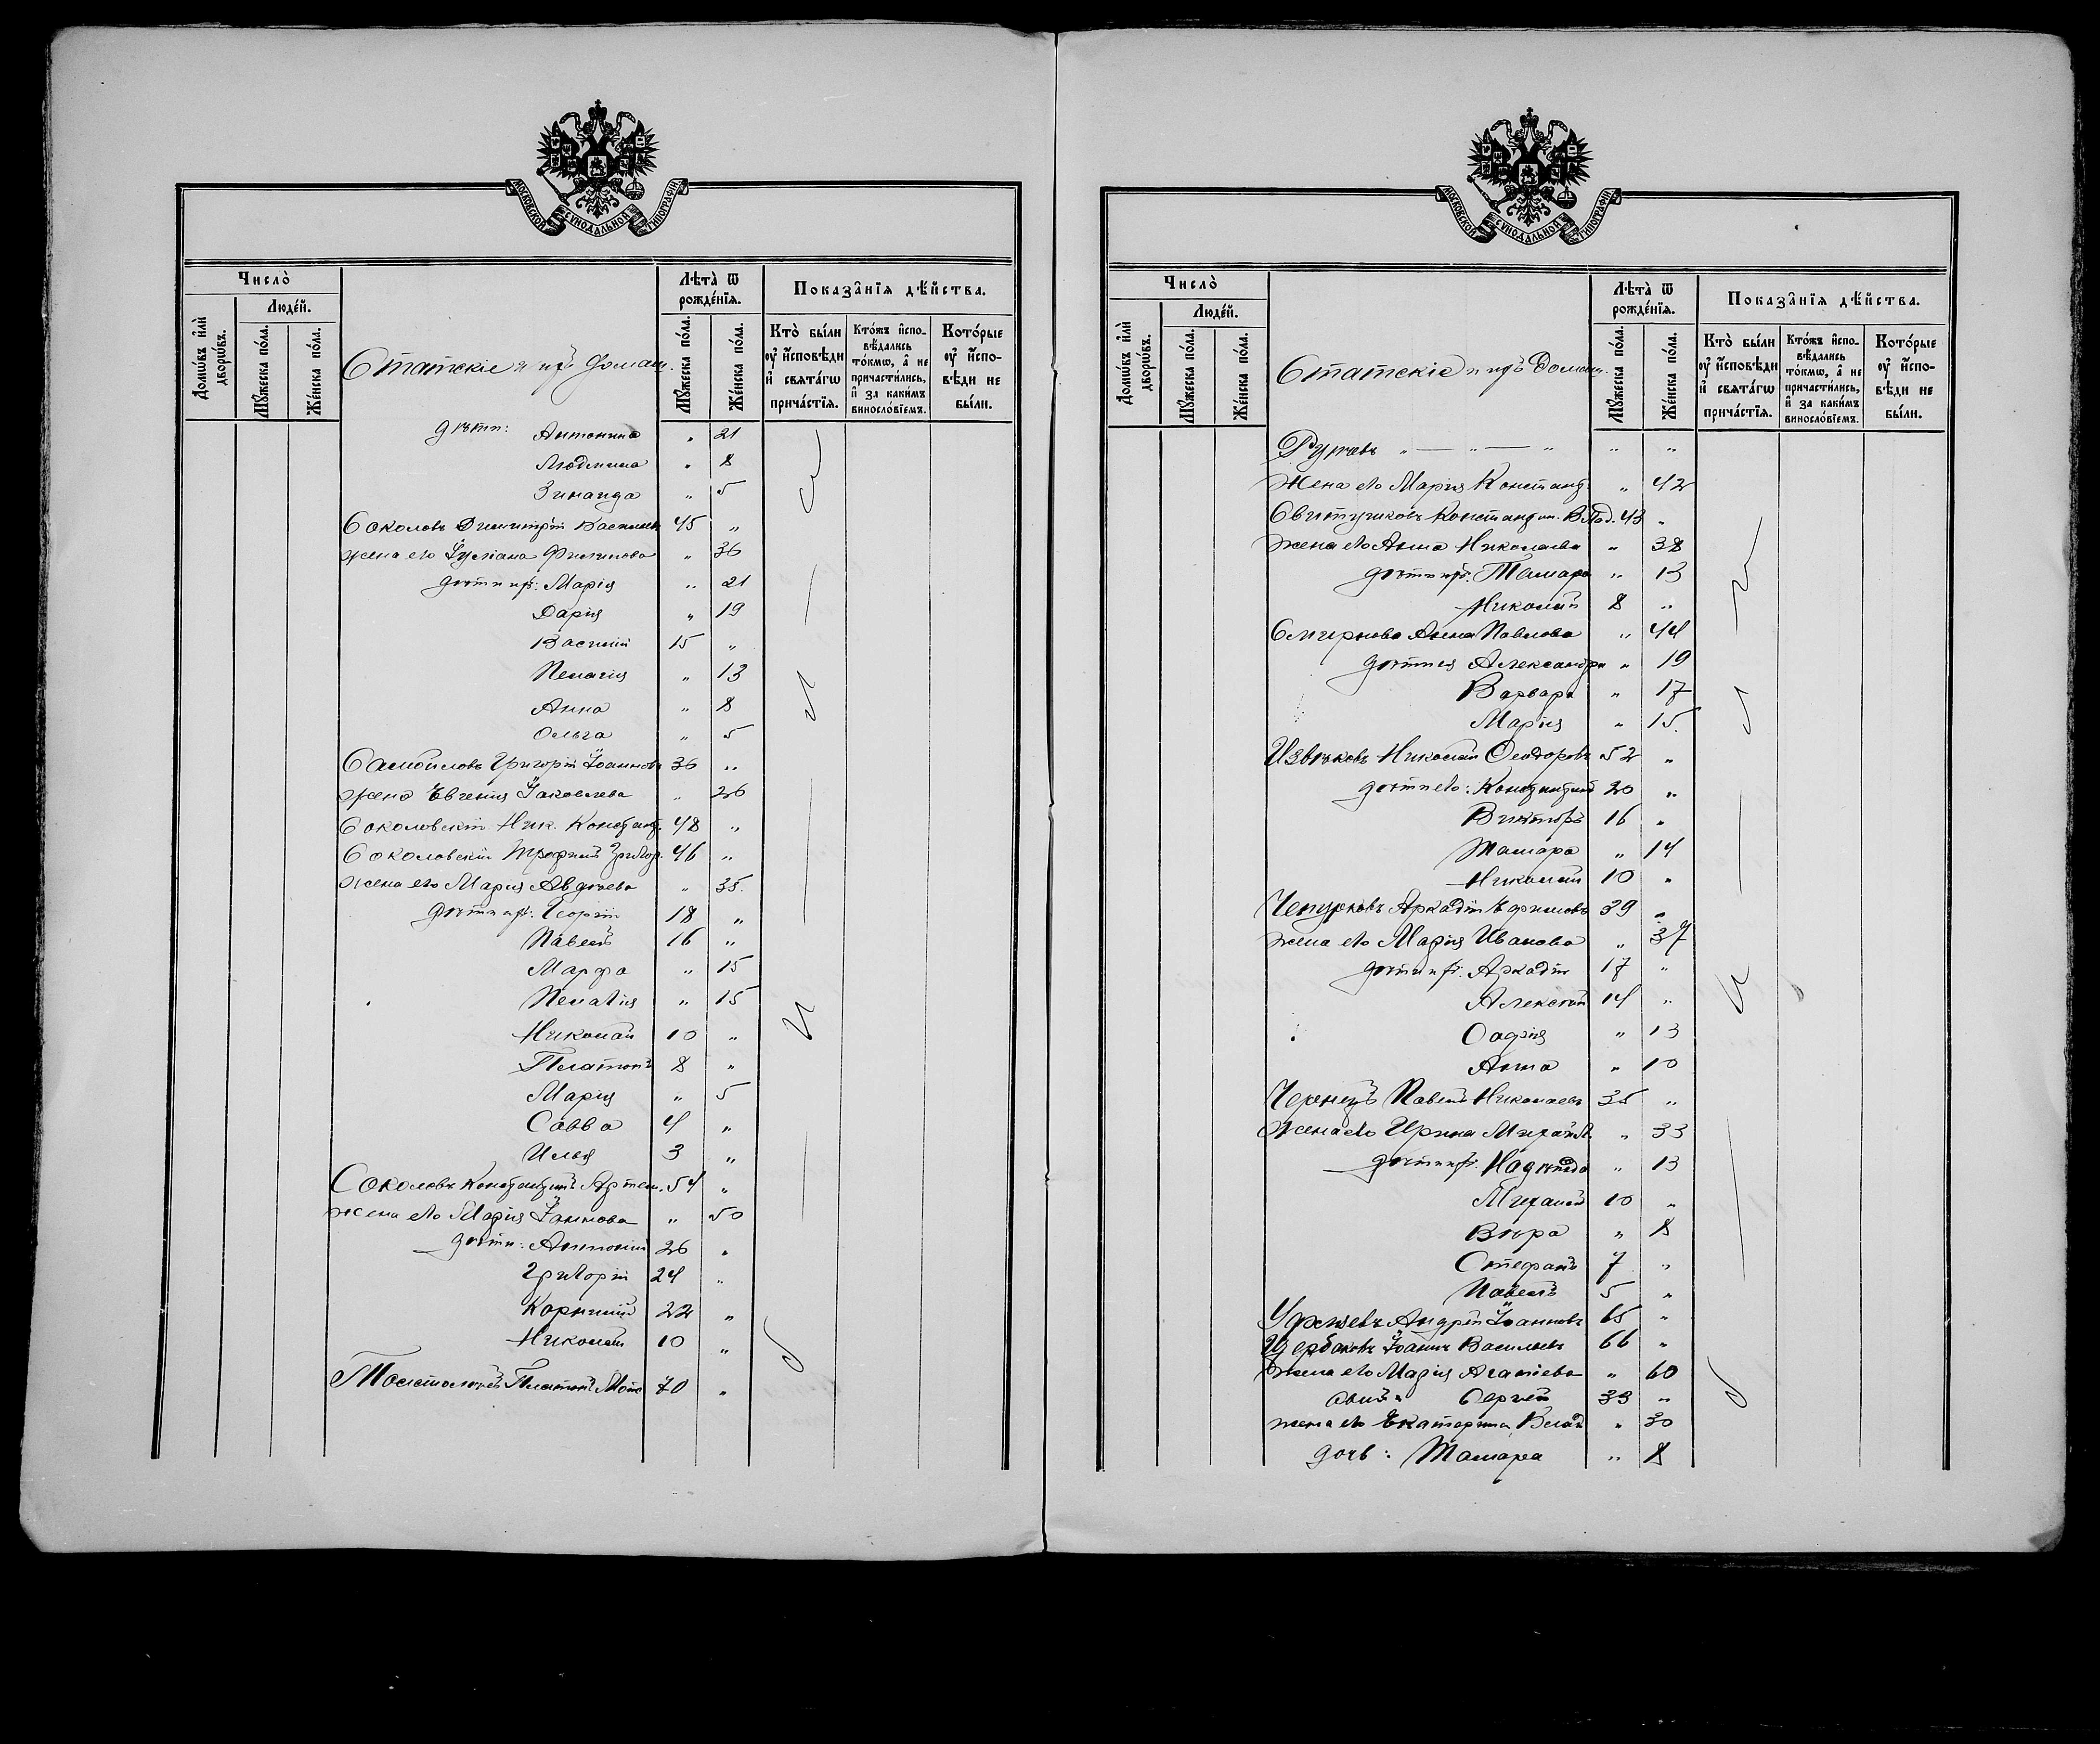 МОСКОВСКОЙ СѴНОДАЛЬНОЙ ТИПОГРАФІИ.
Число̀
Домѡ́въ и҆лѝ дворѡ́въ.
Люде́й.
Мꙋ́жеска по́ла.
Же́нска по́ла.
Статскіе и ихъ домаш.
Лѣта̀ ѿ рожде́нїѧ.
Мꙋ́жеска по́ла.
Же́нска по́ла.
Показа̑нїѧ дѣ́йства.
Кто̀ бы́ли ᲂу҆ и҆сповѣ́ди и҆ свѧта́гѡ прича́стїѧ.
Кто́жъ и҆спо-вѣ́дались то́кмѡ, а҆ не причасти́лись, и҆ за каки́мъ винослᲂ́вїемъ.
Кото́рые ᲂу҆ и҆спо-вѣ́ди не бы́ли.
дѣти: Антонина " 21
Людмила " 8
Зинаида " 5
Соколовъ Димитрій Васильев. 45 "
жена его Іуліана Филипова " 36
дѣти ихъ: Марія " 21
Дарія " 19
Василій 15 "
Пелагія " 13
Анна " 8
Ольга " 5
Самойловъ Григорій Іоанновъ 36 "
жена Евгенія Іаковлева " 26
Соколовскій Ник. Констант. 48 "
Соколовскій Трофимъ Григор. 46 "
жена его Марія Авдѣева " 35.
дѣти ихъ: Георгій 18 "
Павелъ 16 "
Марфа " 15
Пелагія " 15
Николай 10 "
Платонъ 8 "
Марія " 5
Савва 4 "
Илья 3 "
Соколовъ Константинъ Артем. 54 "
жена его Марія " 50
дѣти: Антоній 26 "
Григорій 24 "
Корнилій 22 "
Николай 10 "
Платонъ Моис 70 "
МОСКОВСКОЙ СѴНОДАЛЬНОЙ ТИПОГРАФІИ.
Число̀
Домѡ́въ и҆лѝ дворѡ́въ.
Люде́й.
Мꙋ́жеска по́ла.
Же́нска по́ла.
Статскіе и ихъ домаш.
Лѣта̀ ѿ рожде́нїѧ.
Мꙋ́жеска по́ла.
Же́нска по́ла.
Показа̑нїѧ дѣ́йства.
Кто̀ бы́ли ᲂу҆ и҆сповѣ́ди и҆ свѧта́гѡ прича́стїѧ.
Кто́жъ и҆спо-вѣ́дались то́кмѡ, а҆ не причасти́лись, и҆ за каки́мъ винослᲂ́вїемъ.
Кото́рые ᲂу҆ и҆спо-вѣ́ди не бы́ли.
" — " — " " "
жена его Марія Констант. " 42
Константин. Влад. 43 "
жена его Анна Николаева " 38
дѣти ихъ: Тамара " 13
Николай 8 "
Смирнова Анна Павлова " 44
дѣти ея Александра " 19
Варвара " 17
Марія " 15.
Извѣковъ Николай Феодоровъ 52 "
дѣти его: Константинъ 20 "
Викторъ 16 "
Тамара " 14
Николай 10 "
Чепурновъ Аркадій Ефимовъ 39 "
жена его Марія Иванова " 37
дѣти ихъ: Аркадій 17 "
Алексѣй 14 "
Софія " 13
Анна " 10
Чернецъ Павелъ Николаевъ 35 "
жена его Ирина Михайл. " 33
дѣти ихъ: Надежда " 13
Михаилъ 10 "
Вѣра " 8
Стефанъ 7 "
Павелъ 5 "
Андрей Іоанновъ 65 "
Щербаковъ Іоаннъ Васильевъ 66 "
жена его Марія Агапіева " 60
сынъ " Сергѣй 33 "
жена его Екатерина Влад " 30
дочь: Тамара " 8